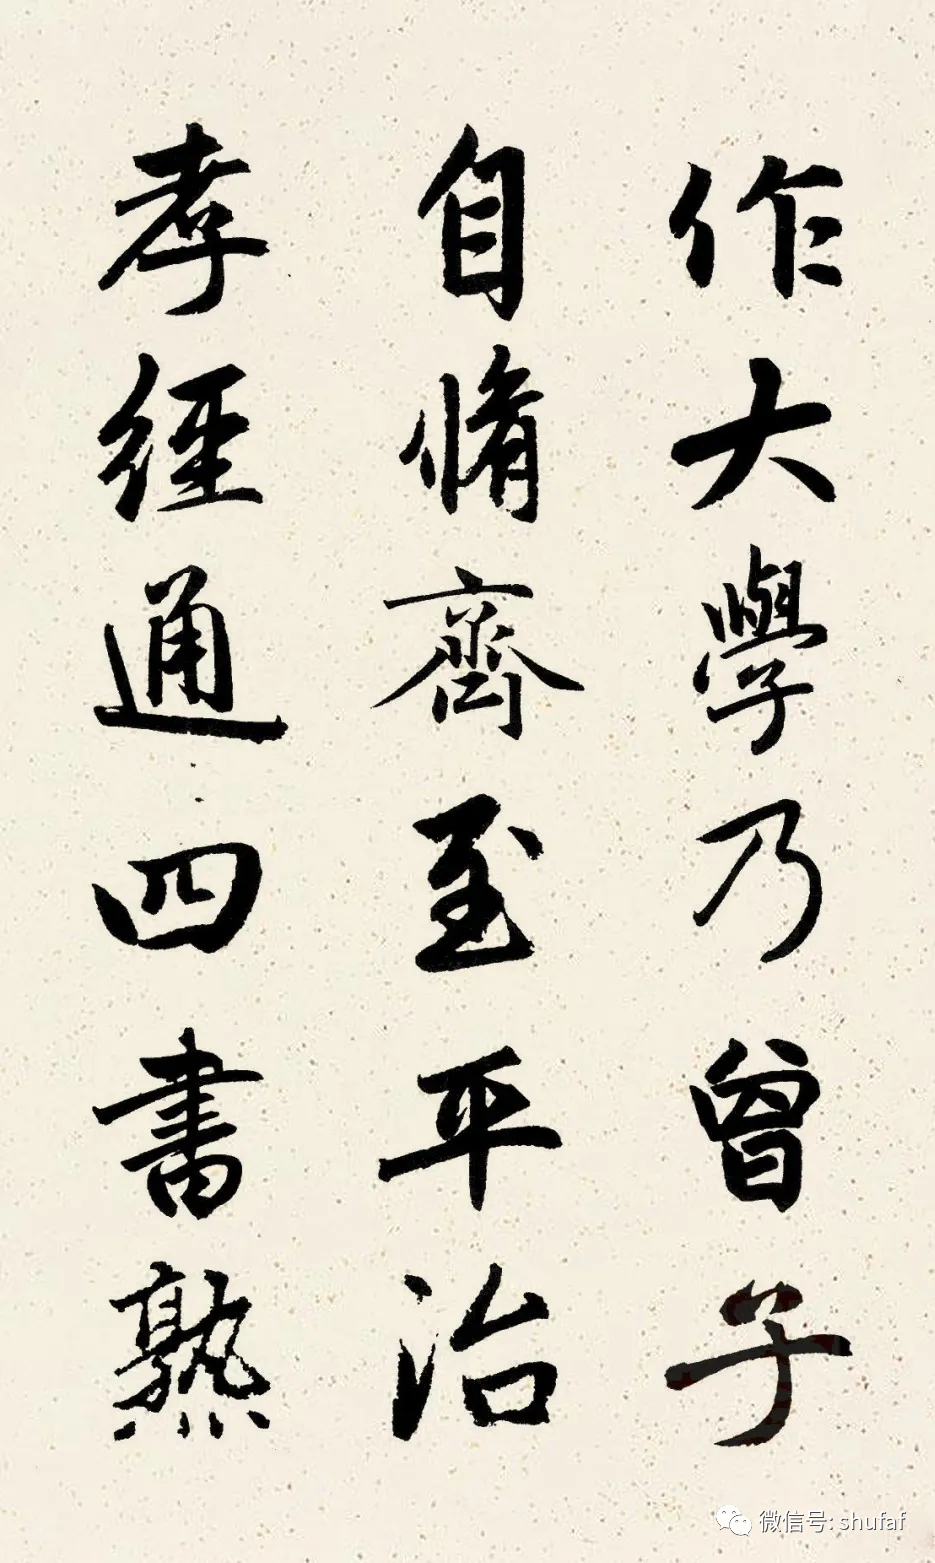 作大學乃曾子
自脩齊至平治
孝經通四書熟
微信号: shufaf